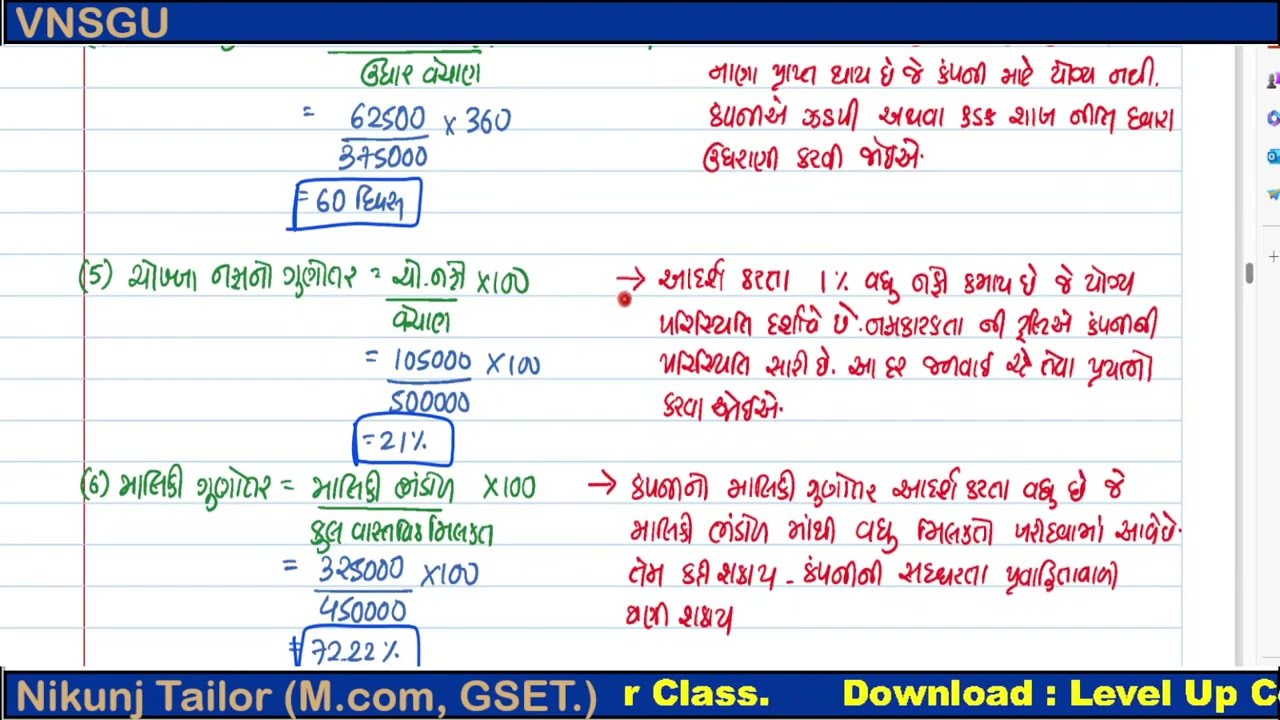 VNSGU
ઉધાર વેચાણ
= 62500 × 360
375000
= 60 દિવસ
નાણા પ્રાપ્ત થાય છે જે કંપની માટે યોગ્ય નથી.
કંપનીએ ઝડપી અથવા કડક શાખ નીતિ દ્વારા
ઉઘરાણી કરવી જોઈએ.
(5) ચોખ્ખા નફાનો ગુણોતર = ચો.નફો ×100
વેચાણ
= 105000 × 100
500000
= 21%
→ આદર્શ કરતા 1% વધુ નફો કમાય છે જે યોગ્ય
પરિસ્થિતિ દર્શાવે છે. નફાકારકતા ની દ્રષ્ટિએ કંપનીની
પરિસ્થિતિ સારી છે. આ દર જળવાઈ રહે તેવા પ્રયત્નો
કરવા જોઈએ.
(6) માલિકી ગુણોતર = માલિકી ભંડોળ ×100
કુલ વાસ્તવિક મિલકત
= 325000 ×100
450000
= 72.22%
→ કંપનીનો માલિકી ગુણોતર આદર્શ કરતા વધુ છે જે
માલિકી ભંડોળ માંથી વધુ મિલકતો ખરીદવામાં આવેછે.
તેમ કહી શકાય - કંપનીની સધ્ધરતા પ્રવાહિતાવાળી
ગણી શકાય
Nikunj Tailor (M.com, GSET.) r Class. Download : Level Up C